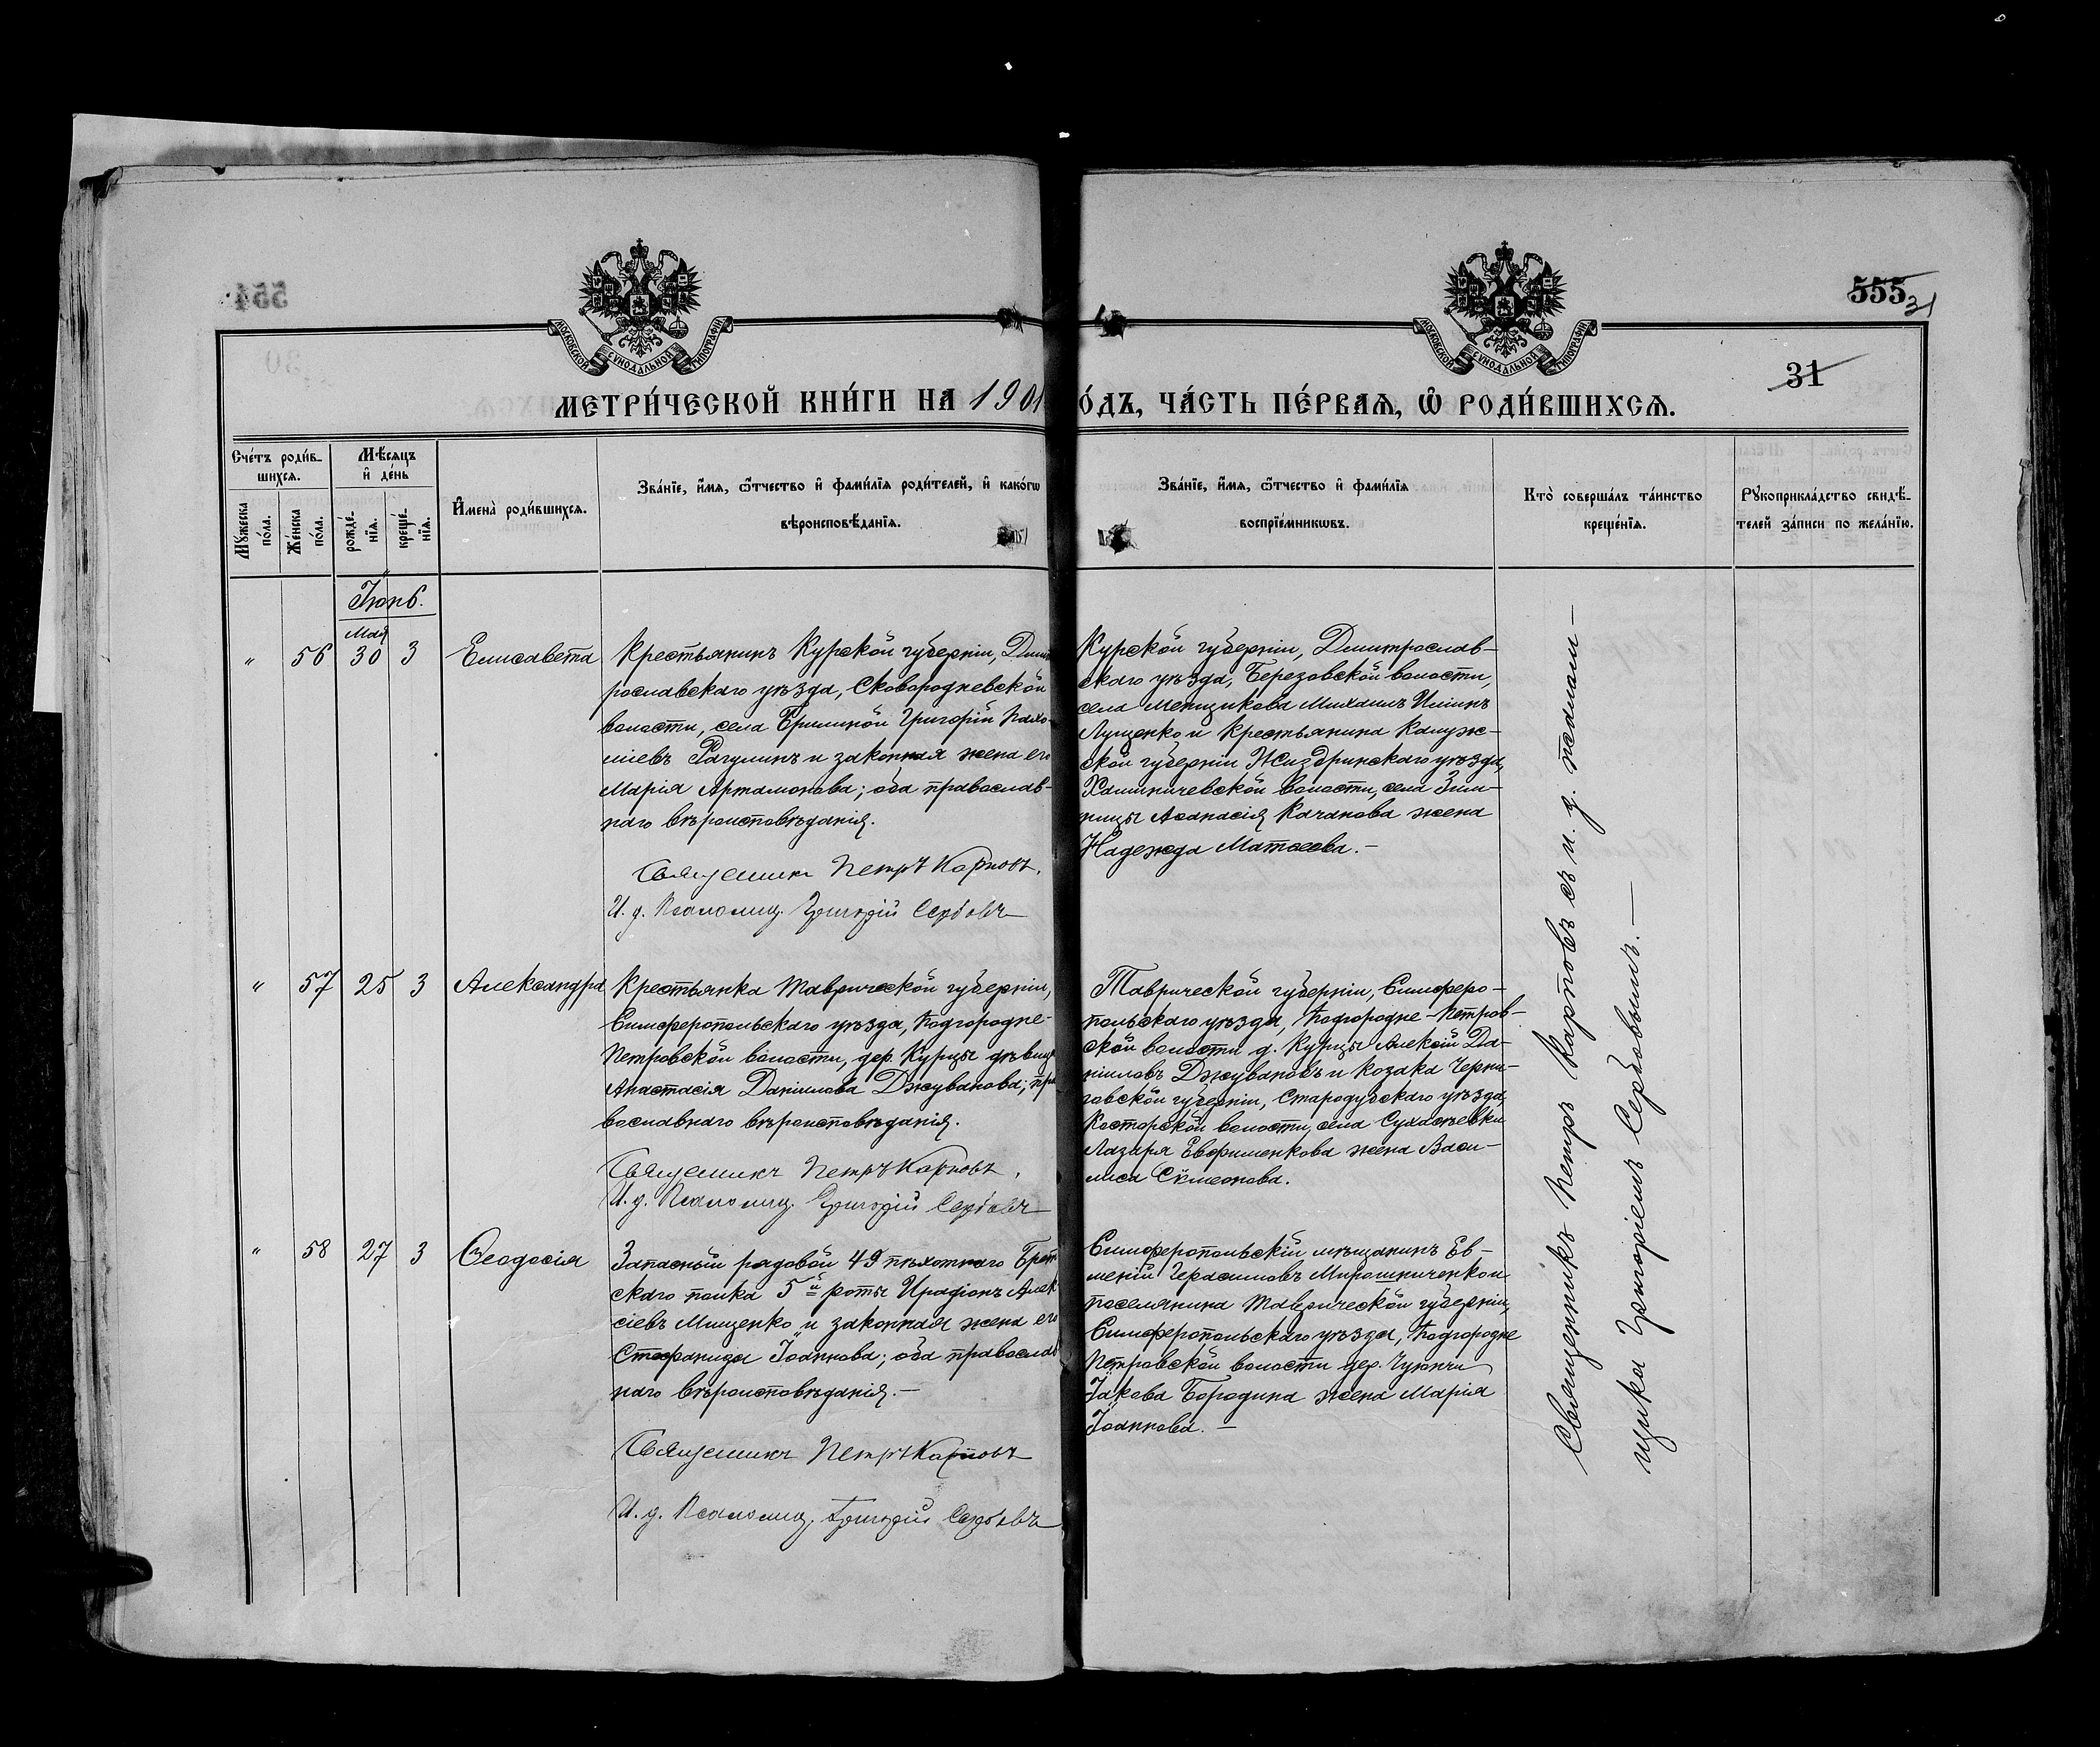 555 31
31
МОСКОВСКОЙ СѴНОДАЛЬНОЙ ТИПОГРАФІИ
МОСКОВСКОЙ СѴНОДАЛЬНОЙ ТИПОГРАФІИ
МЕТРИ́ЧЕСКОЙ КНИ́ГИ НА 1901
О́ДЪ, ЧА́СТЬ ПЕ́РВАѦ, Ѽ РОДИ́ВШИХСѦ.
Сче́тъ роди́в-
шихсѧ.
Мꙋжеска по́ла.
Же́нска по́ла.
Мѣ́сѧцъ
и҆ де́нь
рожде́-
нїѧ.
креще́-
нїѧ.
И҆мена̀ роди́вшихсѧ.
Зва́нїе, и҆́мѧ, ѻ҆́тчество и҆ фами́лїѧ роди́телей, и҆ како́гѡ
вѣроисповѣ́данїѧ.
Зва́нїе, и҆́мѧ, ѻ҆́тчество и҆ фами́лїѧ
воспрїе́мникѡвъ.
Кто̀ соверша́лъ та́инство
креще́нїѧ.
Рꙋкоприкла́дство свидѣ́-
телей за́писи по жела́нїю.
Іюнь.
Мая
" 56 30 3 Елисавета
Крестьянинъ Курской губерніи, Дмит
рославскаго уѣзда, Сковородневской
волости, села Григорій Пахо-
міевъ Рагулинъ и законная жена его
Марія Артамонова; оба православ-
наго вѣроисповѣданія.
Священникъ Петръ Карповъ.
И. д. Псаломщ. Григорій Сербовъ
Курской губерніи, Дмитрослав-
скаго уѣзда, Березовской волости,
села Меньщикова Михаилъ Илiинъ
Лущенко и крестьянина Калуж-
ской губерніи Жиздринскаго уѣзда,
волости, села Зим-
ницы Аѳанасія Качанова жена
Надежда Матѳеева. –
" 57 25 3 Александра
Крестьянка Таврической губерніи,
Симферопольскаго уѣзда, Подгородне-
Петровской волости, дер. Курцы дѣвица
Анастасія Даніилова Джуванова; пра
вославнаго вѣроисповѣданія.
Священникъ Петръ Карповъ.
И. д. Псаломщ. Григорій Сербовъ
Таврической губерніи, Симферо-
польскаго уѣзда, Подгородне-Петров-
ской волости д. Курцы Алексій Да-
ніиловъ Джувановъ и козака Черни-
говской губерніи, Стародубскаго уѣзда,
волости, села
Лазаря Евфименкова жена Васи-
лиса Сѵмеонова.
" 58 27 3 Ѳеодосія
Запасный рядовой 49 пѣхотнаго Брест
скаго полка 5й роты Иродіонъ Алек
сіевъ Мищенко и законная жена его
Стефанида Іоаннова; оба православ
наго вѣроисповѣданія. –
Священникъ Петръ Карповъ
И. д. Псаломщ. Григорій Сербовъ
Симферопольскій мѣщанинъ Ев-
меній Герасимовъ Мирошниченко и
поселянина Таврической губерніи,
Симферопольскаго уѣзда, Подгородне
Петровской волости дер. Чуюнчи
Іакова Бородина жена Марія
Іоаннова. –
Священникъ Петръ Карповъ съ и. д. псалом-
щика Григоріемъ Сербовымъ. –